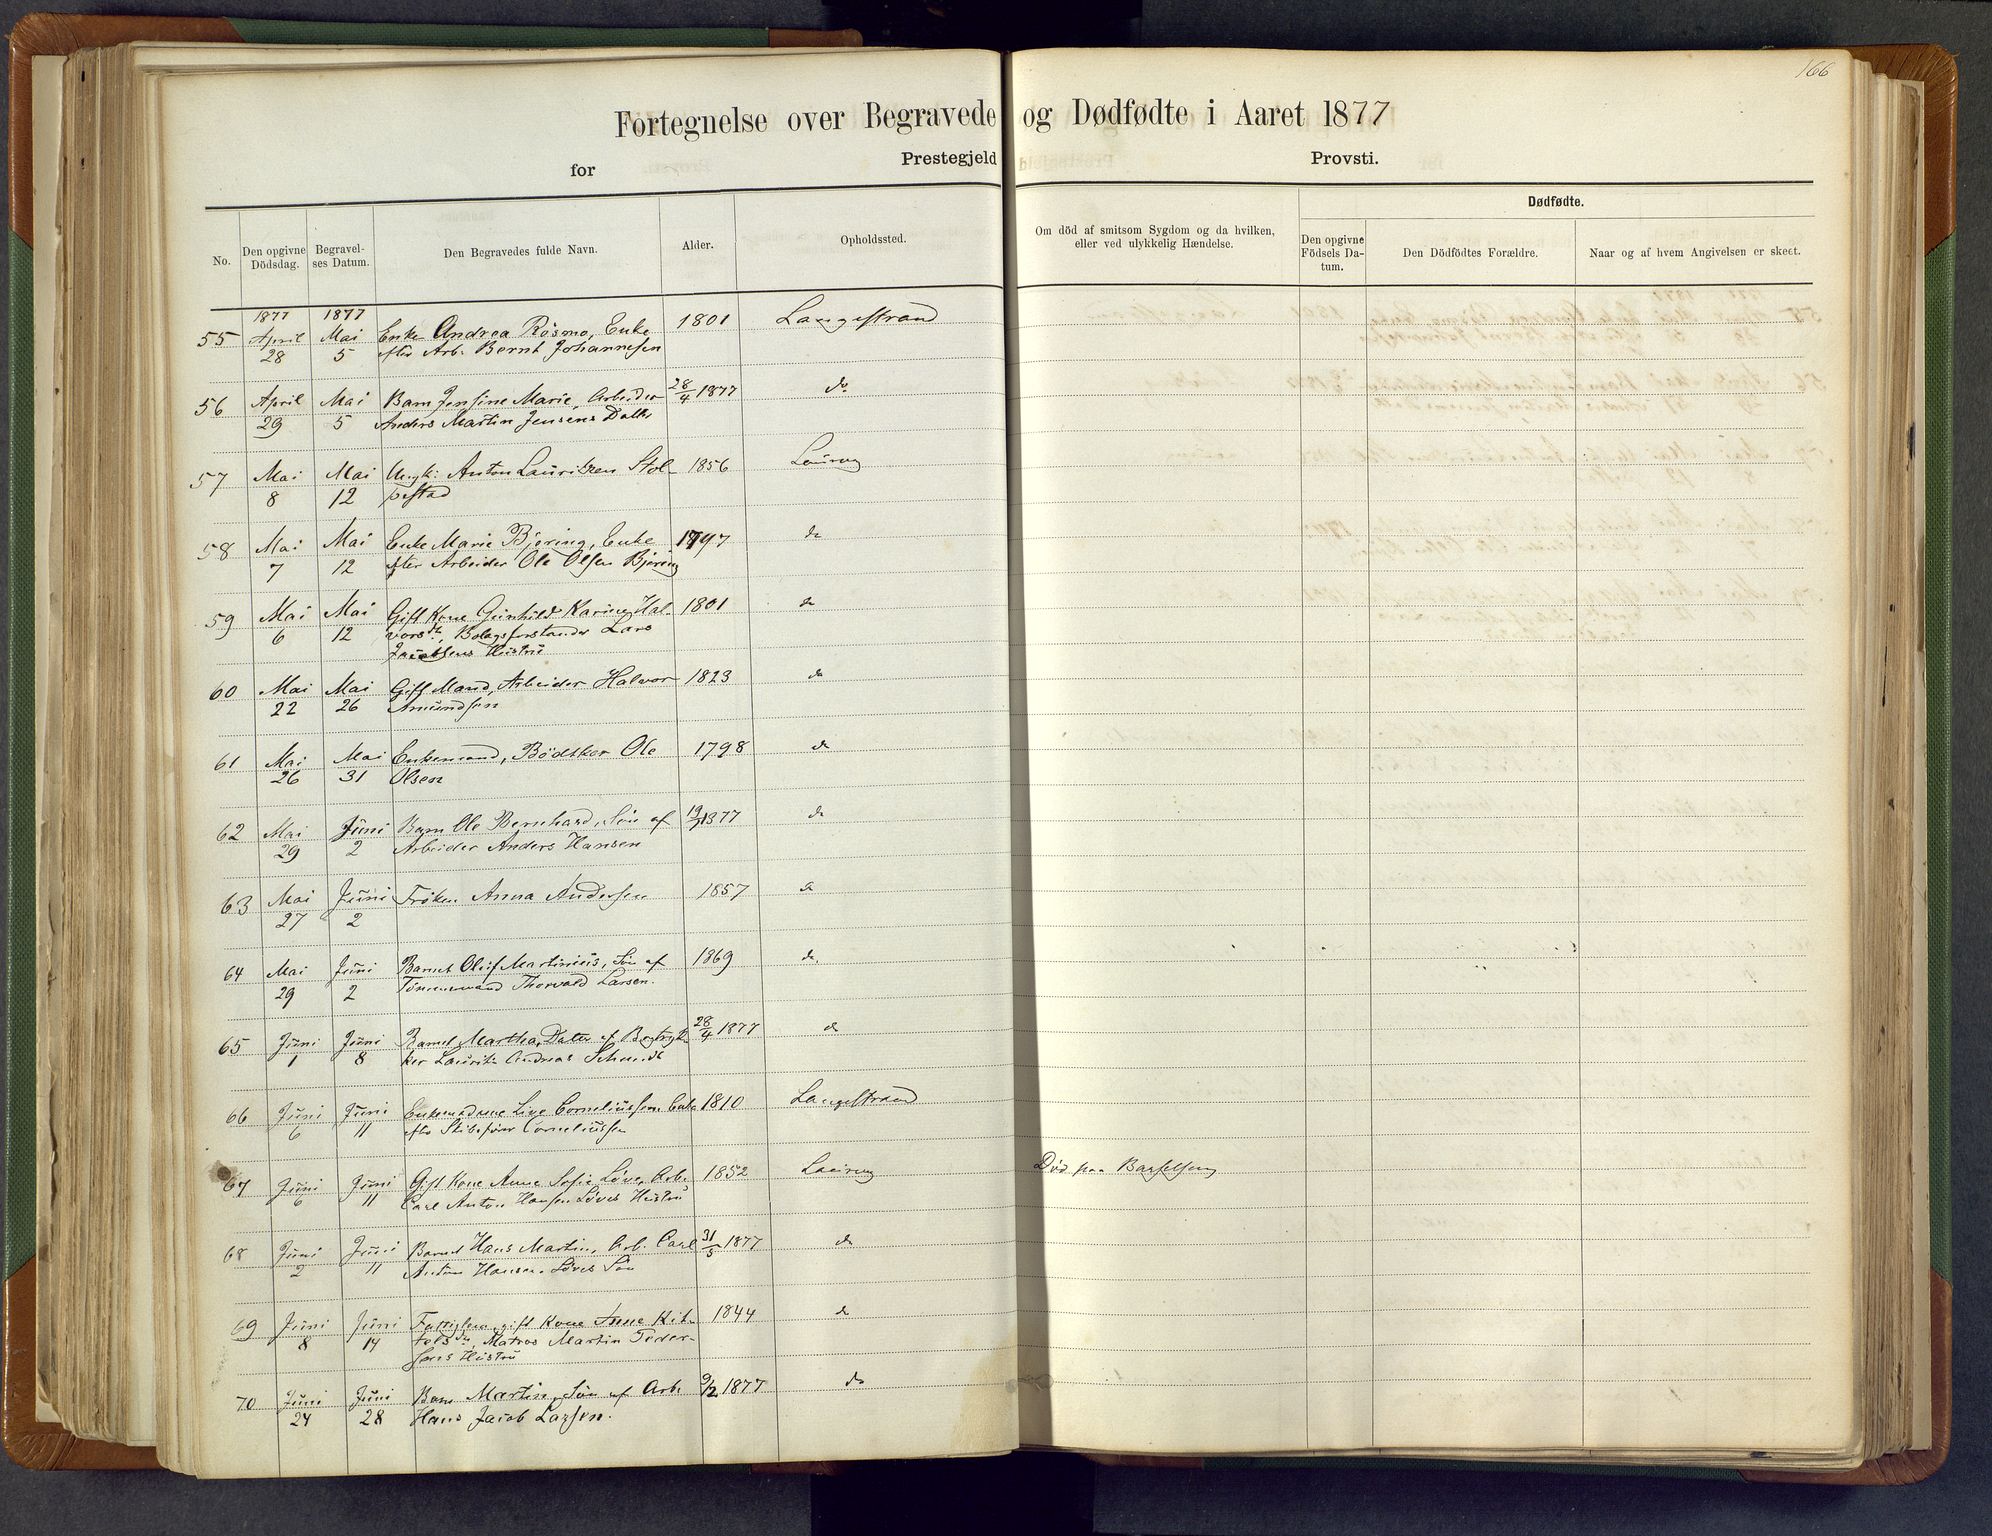 166
Fortegnelse over Begravede og Dødfødte i Aaret 1877
for Prestegjeld Provsti.
No. Den opgivne Dödsdag. Begravelses Datum. Den Begravedes fulde Navn. Alder. Opholdssted. Om död af smitsom Sygdom og da hvilken, eller ved ulykkelig Hændelse. Dødfødte.
Den opgivne Födsels Datum. Den Dödfödtes Forældre. Naar og af hvem Angivelsen er skeet.
1877 1877
55 April Mai Enke Andrea Rösmo, Enke 1801 Langestrand
28 5 efter Arb. Bernt Johannesen
56 April Mai Barn Jensine Marie, Arbeider 28/4 1877 do
29 5 Anders Martin Jensens Datter
57 Mai Mai Ungk: Anton Lauritzen Stol- 1856 Laurvig
8 12 pestad
58 Mai Mai Enke Marie Bjøring, Enke 1797 do
7 12 efter Arbeider Ole Olsen Bjøring
59 Mai Mai Gift Kone Gunhild Karine Hal- 1801 do
6 12 vorsdtr, Bolagsforstander Lars
Jacobsens Hustru
60 Mai Mai Gift Mand, Arbeider Halvor 1823 do
22 26 Amundsen
61 Mai Mai Enkemand, Bödtker Ole 1798 do
26 31 Olsen
62 Mai Juni Barn Ole Bernhard, Sön af 1877 do
29 2 Arbeider Anders Hansen
63 Mai Juni Fröken Anna Andersen 1857 do
27 2
64 Mai Juni Barnet Oluf Martinius, Sön af 1869 do
29 2 Tömmermand Thorvald Larsen.
65 Juni Juni Barnet Martha, Datter af Bogtryk- 28/4 1877 do
1 8 ker Lauritz Andreas Schmidt
66 Juni Juni Enkemadame Live Corneliussen Enke 1810 Langestrand
6 11 efter Skibsförer Corneliussen
67 Juni Juni Gift Kone Anne Sofie Löve, Arb. 1852 Laurvig Död paa Barselseng
6 11 Carl Anton Hansen Löves Hustru
68 Juni Juni Barnet Hans Martin, Arb. Carl 31/5 1877 do
2 11 Anton Hansen Löves Sön
69 Juni Juni Fattiglem, gift Kone Anne Kit- 1844 do
8 14 telsdtr, Matros Martin Peder-
sens Hustru
70 Juni Juni Barn Martin, Sön af Arb. 9/2 1877 do
24 28 Hans Jacob Larsen.